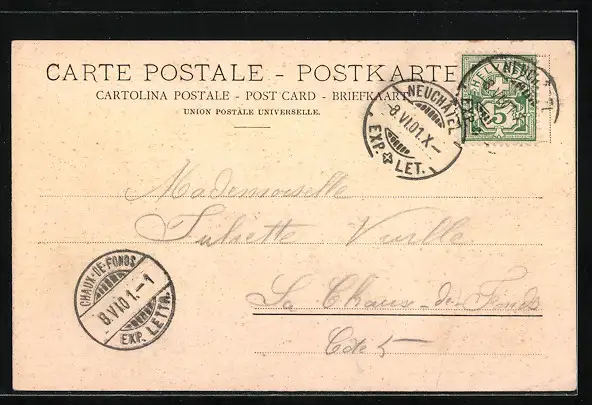 CARTE POSTALE - POSTKARTE
CARTOLINA POSTALE - POST CARD - BRIEFKAART
UNION POSTALE UNIVERSELLE.
NEUCHATEL
8.VI.01.X-
EXP. LET.
HELVETIA
5
NEUCHATEL
EXP.
Mademoiselle
Juliette Vuille
La Chaux-de-Fonds
Côte 5
CHAUX-DE-FONDS
8.VI.01.-1
EXP. LETTR.